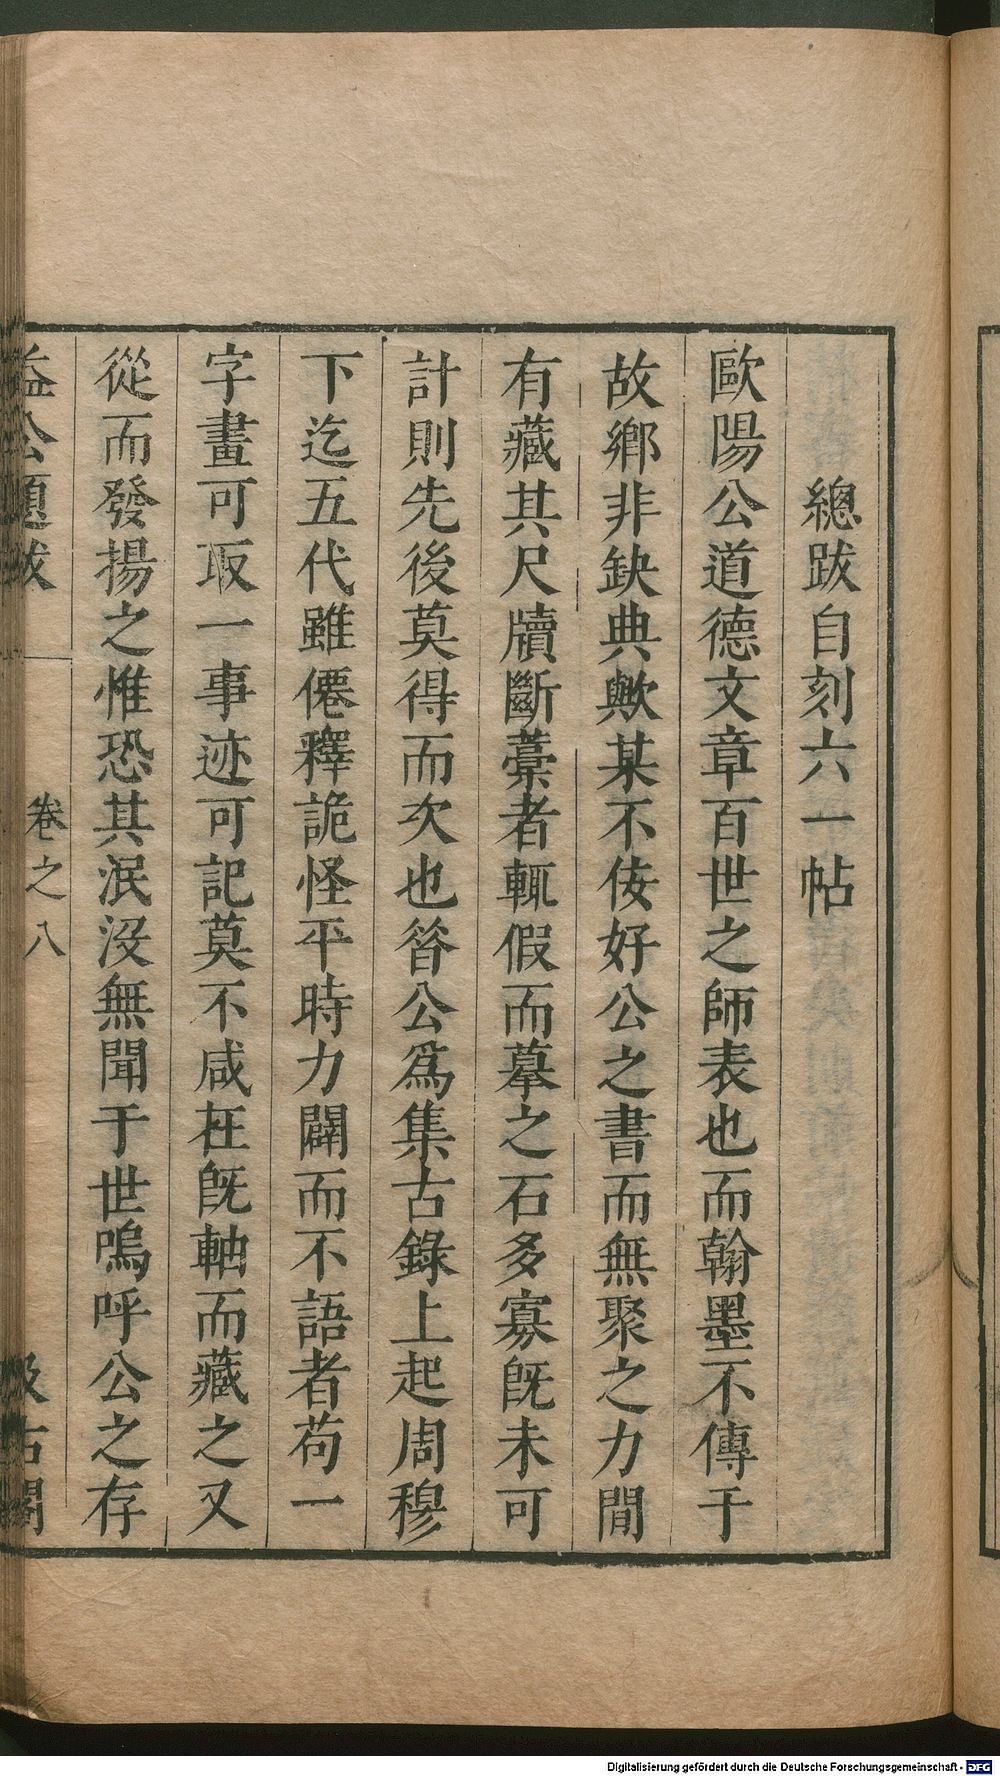 總跋自刻六一帖
歐陽公道德文章百世之師表也而翰墨不傳于
故鄉非缺典歟某不佞好公之書而無聚之力閒
有藏其尺牘斷藁者輒假而摹之石多寡旣未可
計則先後莫得而次也昝公爲集古錄上起周穆
下迄五代雖僊釋詭怪平時力闢而不語者苟一
字畫可取一事迹可記莫不咸在旣軸而藏之又
從而發揚之惟恐其泯没無聞于世嗚呼公之存
益公題跋
卷之八
汲古閣
Digitalisierung gefördert durch die Deutsche Forschungsgemeinschaft - DFG